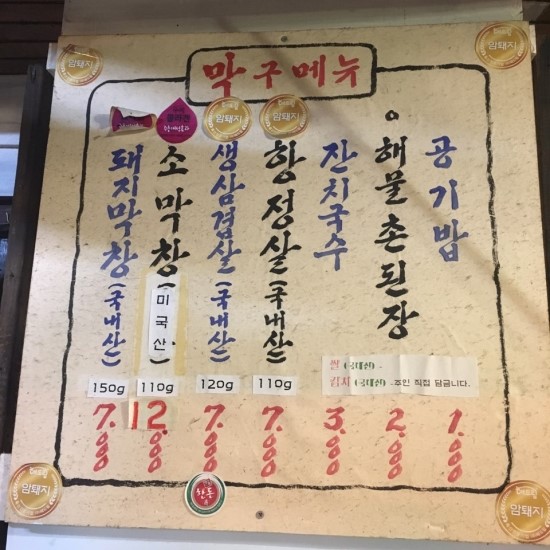 막구메뉴
암돼지
암돼지
돼지막창(국내산)
150g
7.000
소막창(미국산)
110g
12.000
암돼지
생삼겹살(국내산)
120g
7.000
암돼지
항정살(국내산)
110g
7.000
잔치국수
3.000
해물촌된장
2.000
공기밥
1.000
쌀 (국내산) -
김치 (국내산) -주인 직접 담급니다.
암돼지
한돈
암돼지